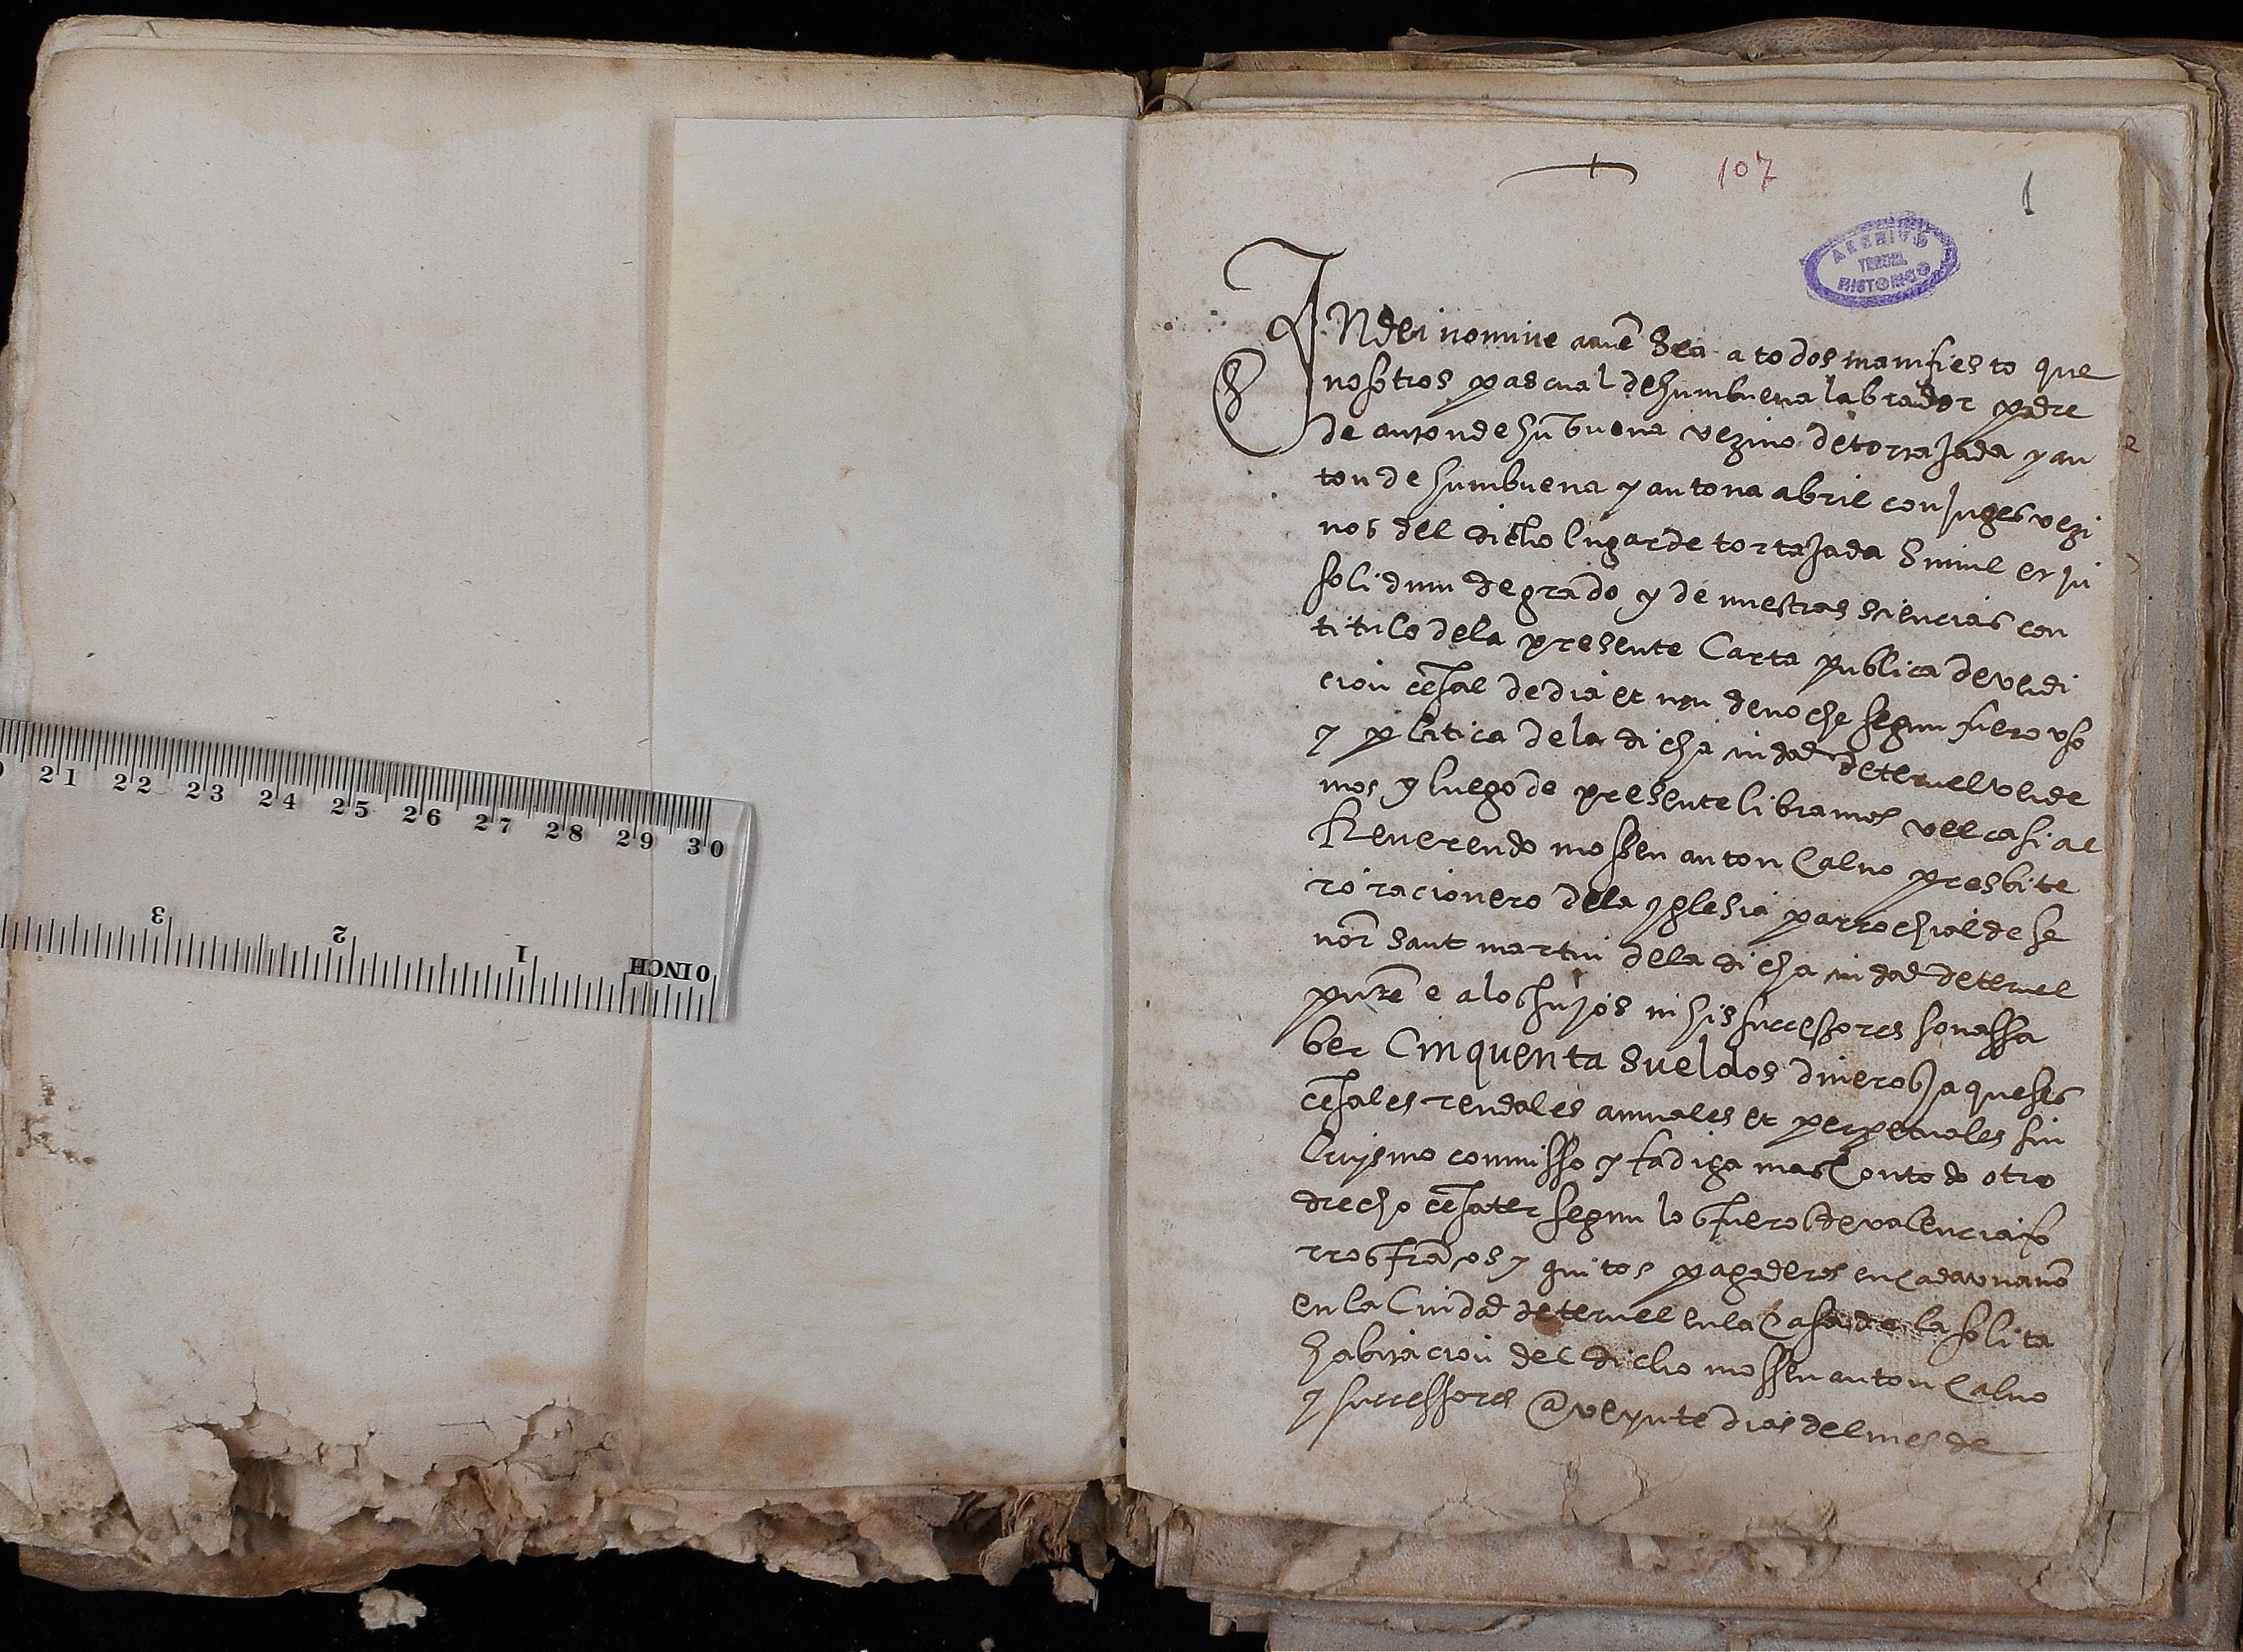 107
1
ARCHIVO
TERUEL
HISTORICO
INdei nomine amē Sea a todos manifiesto que
nosotros pascual de humbuena labrador padre
de anton de hūbuena vezino de tortaJada y an
ton de humbuena y antona abril conJuges vezi
nos del dicho lugar de tortaJada Simul et in
solidum de grado y de nuestras sciencias con
titulo dela presente Carta publica de vendi
cion cēsal de dia et non de noche segun fuero uso
y platica dela dicha ciudad de teruel vende
mos y luego de presente libramos vel casi al
Reverendo mossen anton Calvo presbite
ro racionero dela yglesia parrochial de se
nor sant martin dela dicha ciudad de teruel
e a los suyos in his successores son assa
ber Cinquenta Sueldos dineros Jaqueses
cēsales rendales annuales et perpetuales sin
luysmo commisso y fadiga mas Con todo otro
drecho segun los fueros de valencia fo
rros francos y quitos pagaderos en Cada un año
en la Ciudad de teruel en la Casa de la solita
habitacion del dicho mossen anton Calvo
y successores @ veynte dias del mes de
21 22 23 24 25 26 27 28 29 30
3 2 1 0 INCH